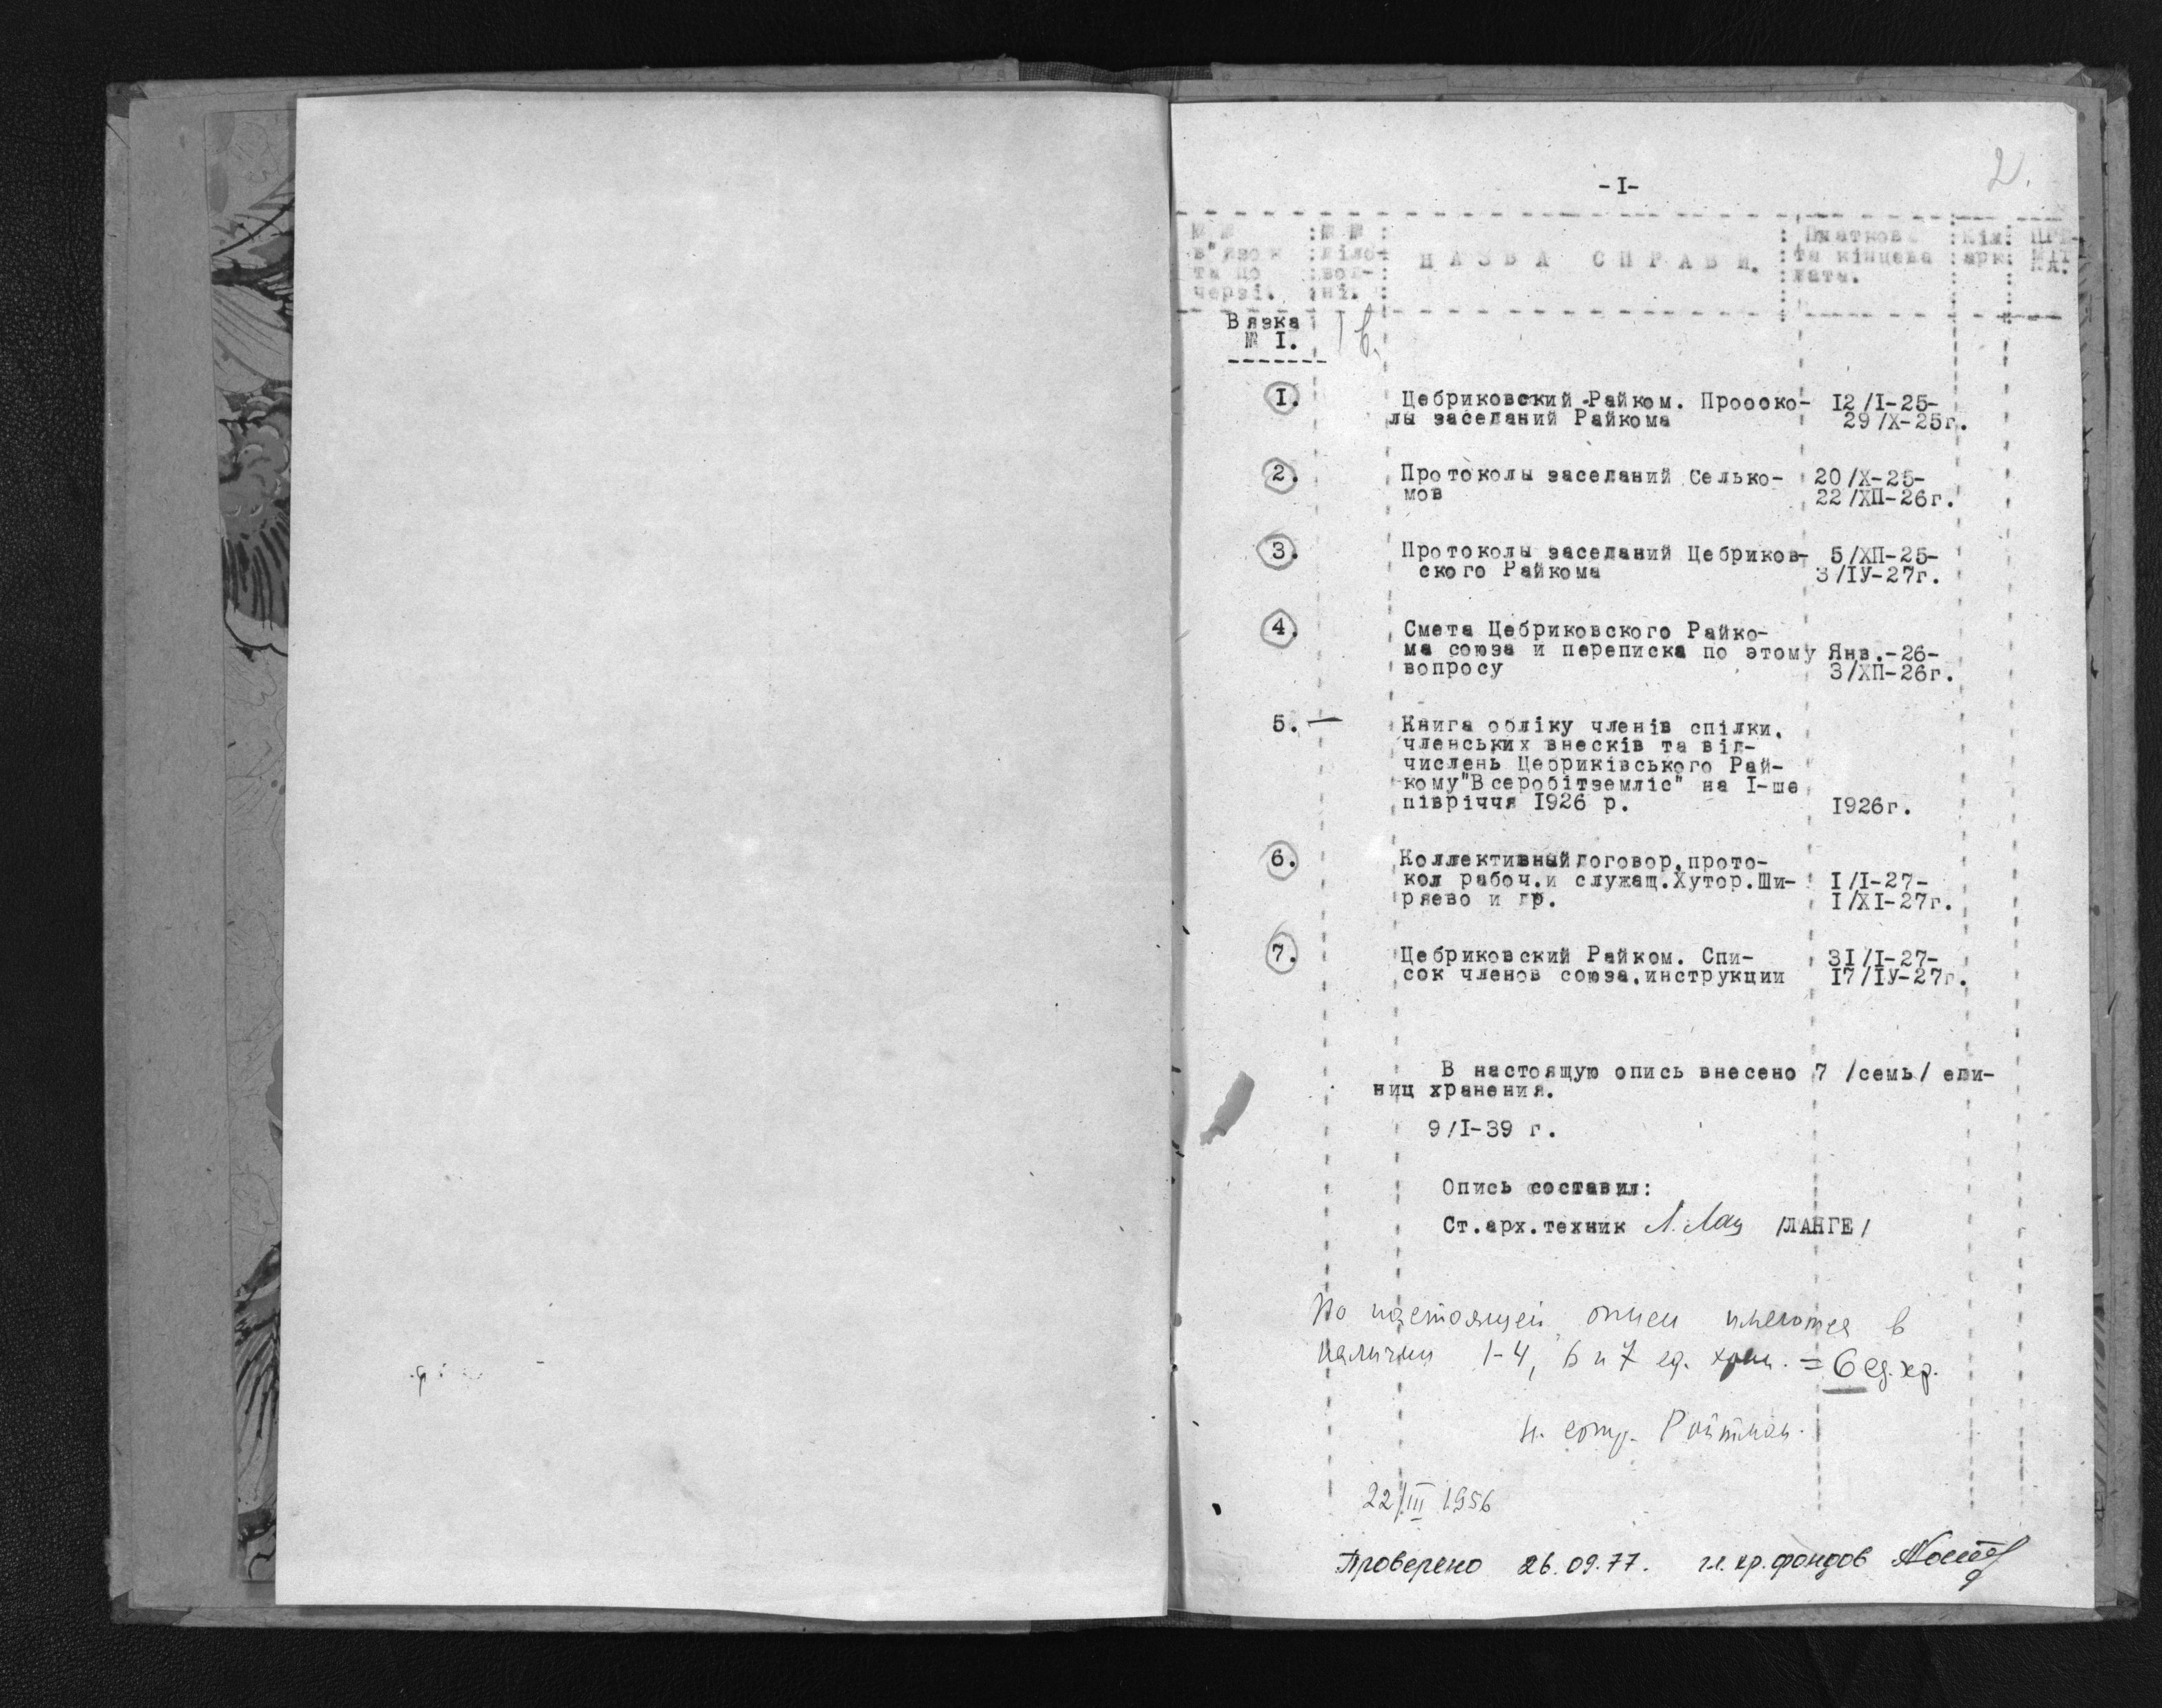 2.
-I-
№ №
в"язок
та по
черзі.
№ №
діло-
вод-
ні.
НАЗВА СПРАВИ.
Початкова
та кінцева
дата.
Кіл.
арк.
ПРИ-
МІТ
КА.
Вязка
№ I.
1.
Цебриковский Райком. Проооко- 12/I-25-
лы заседаний Райкома 29/X-25г.
2.
Протоколы заседаний Селько- 20/X-25-
мов 22/ХП-26г.
3.
Протоколы заседаний Цебриков- 5/ХП-25-
ского Райкома 3/IУ-27г.
4.
Смета Цебриковского Райко-
ма союза и переписка по этому Янв.-26-
вопросу 3/ХП-26г.
5. —
Книга обліку членів спілки,
членських внесків та від-
числень Цебриківського Рай-
кому"Всеробітземліс" на I-ше
півріччя 1926 р. 1926г.
6.
Коллективныйдоговор,прото-
кол рабоч.и служащ.Хутор.Ши- I/I-27-
ряево и др. I/XI-27г.
7.
Цебриковский Райком. Спи- 31/I-27-
сок членов союза,инструкции 17/IУ-27г.
В настоящую опись внесено 7 /семь/ еди-
ниц хранения.
9/I-39 г.
Опись составил:
Ст.арх.техник /ЛАНГЕ/
По настоящей описи имеются в
наличии 1-4, 6 и 7 ед. хран. = 6 ед. хр.
н. сотр. Ройтман.
22/III 1956
Проверено 26.09.77. гл. хр. фондов